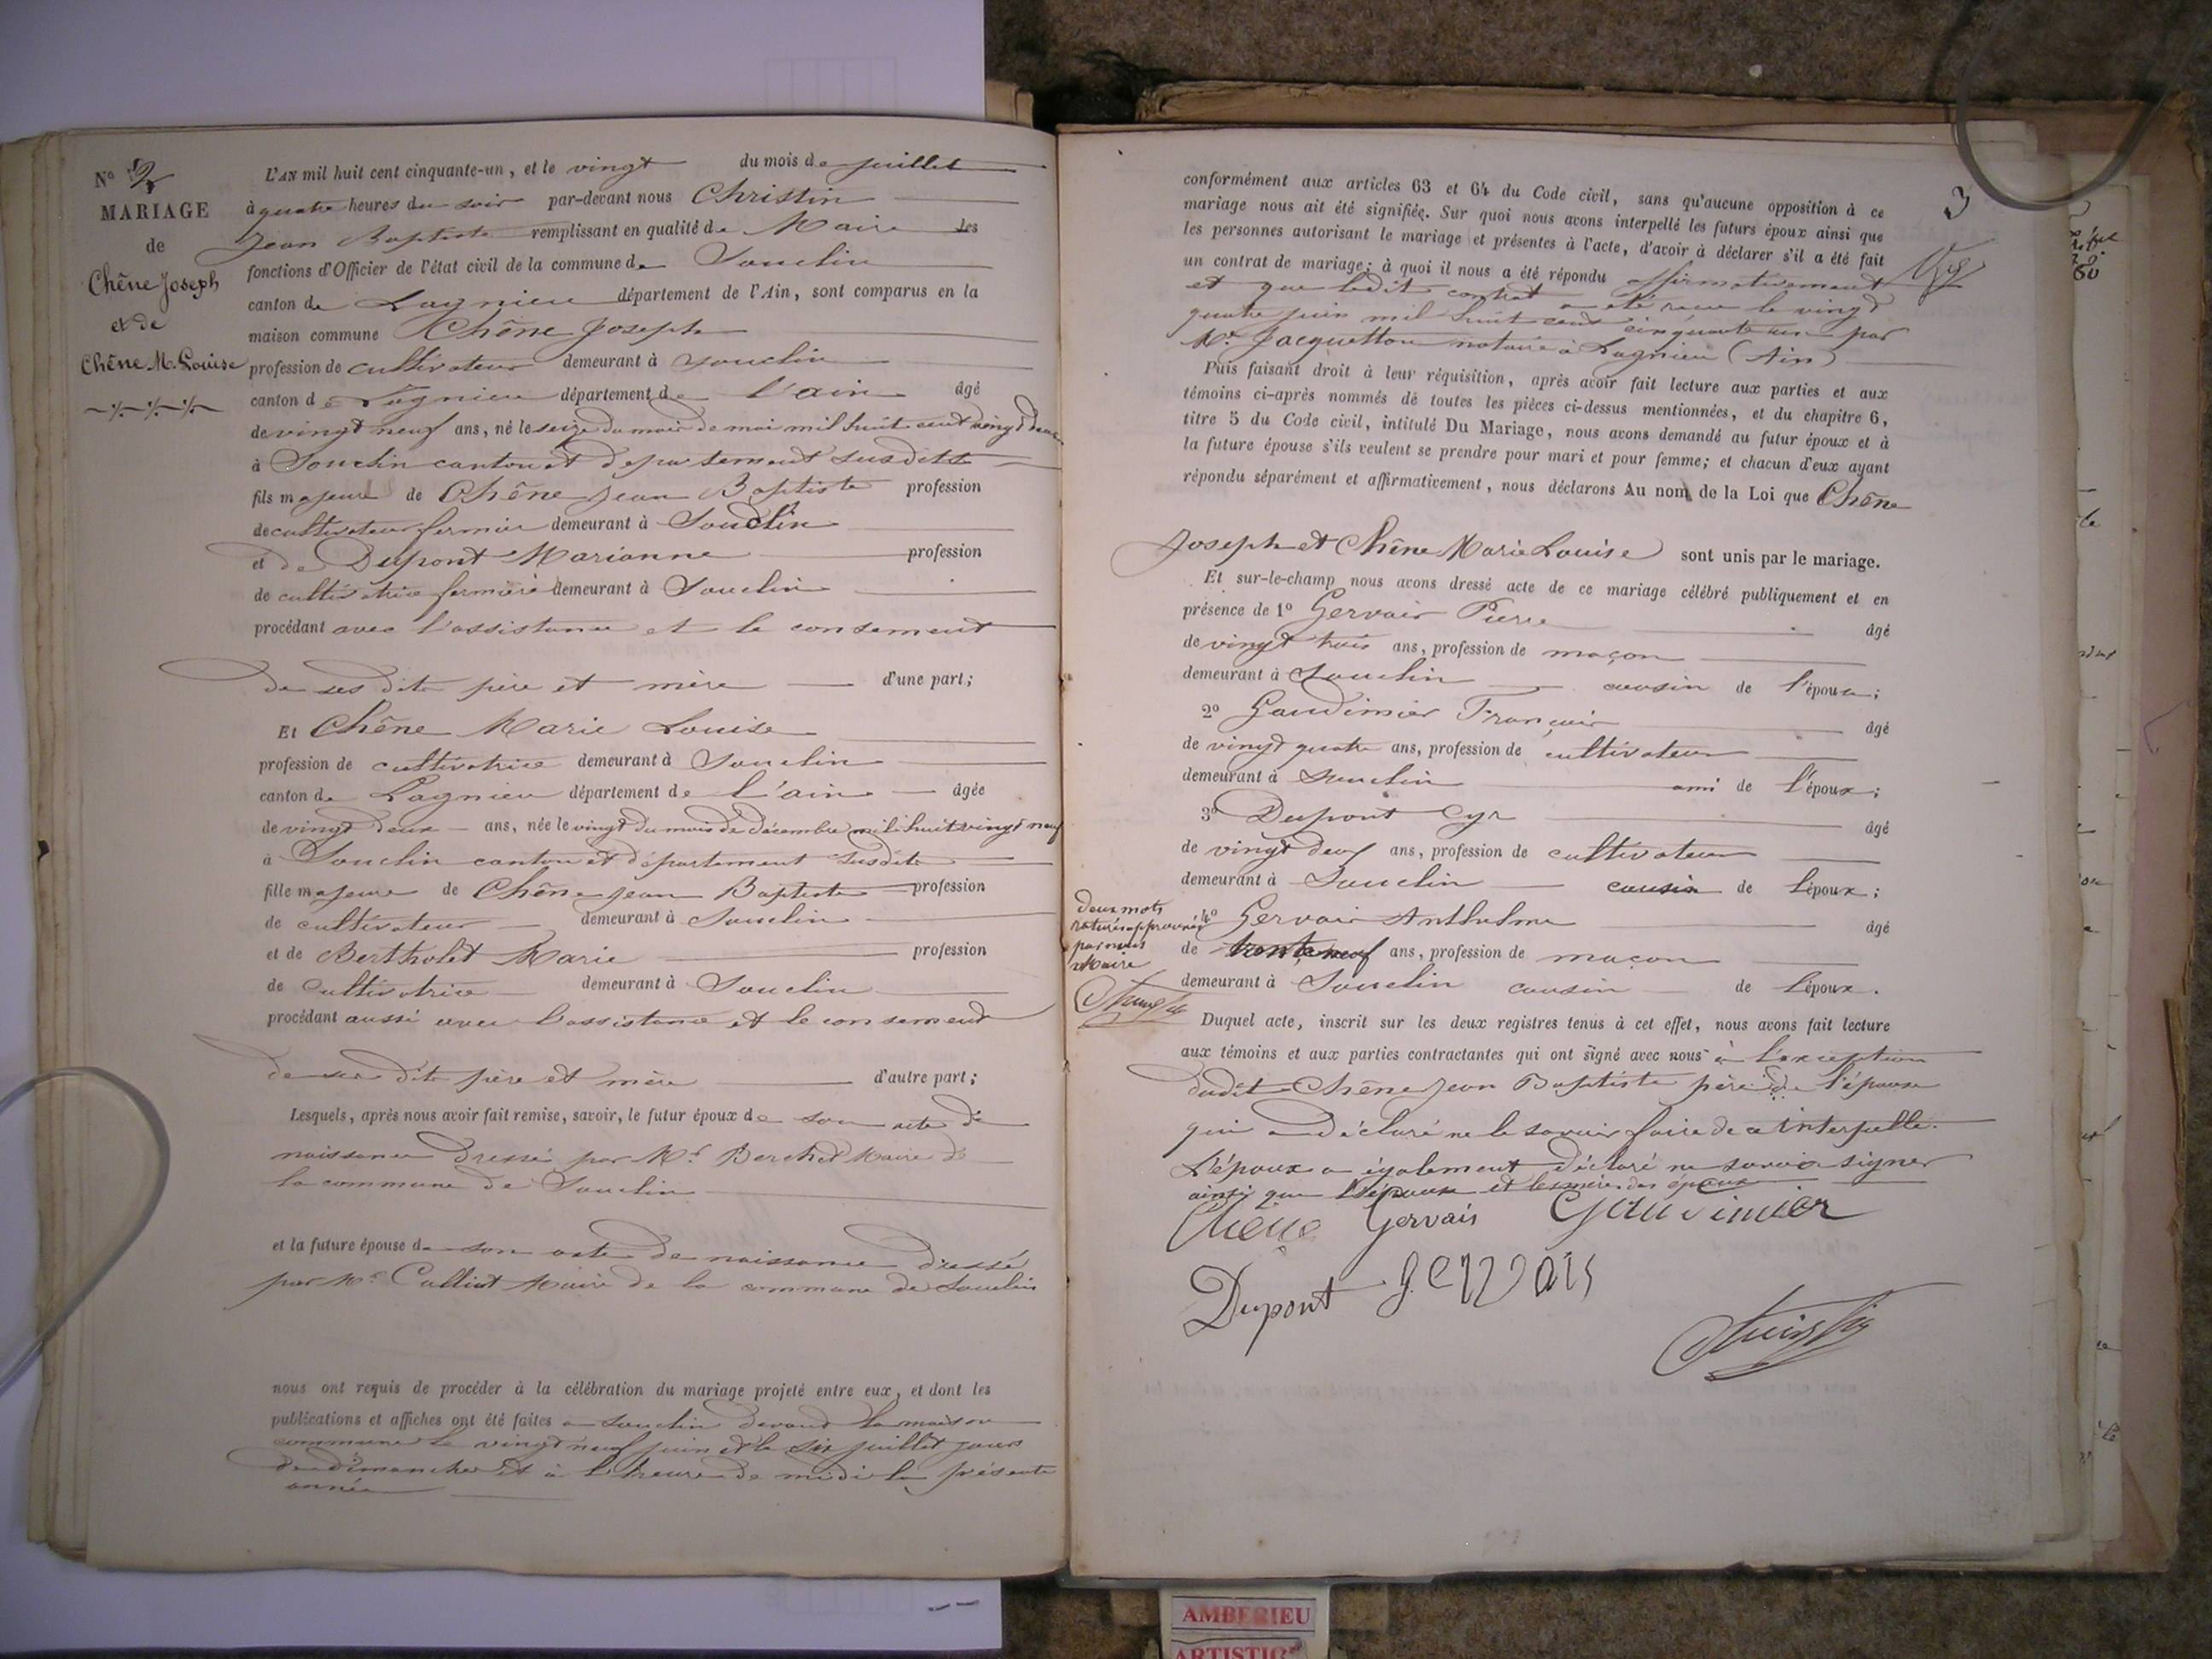 N° 2
MARIAGE
de
Chêne Joseph
et de
Chêne M. Louise
L'AN mil huit cent cinquante-un, et le vingt du mois de juillet
à quatre heures du soir par-devant nous Christin
Jean Baptiste remplissant en qualité de Maire les
fonctions d'Officier de l'état civil de la commune de Souclin
canton de Lagnieu département de l'Ain, sont comparus en la
maison commune Chêne Joseph
profession de cultivateur demeurant à Souclin
canton de Lagnieu département de l'ain âgé
de vingt neuf ans, né le seize du mois de mai mil huit cent vingt deux
à Souclin canton et département susdits
fils majeur de Chêne Jean Baptiste profession
de cultivateur fermier demeurant à Souclin
et de Dupont Marianne profession
de cultivatrice fermière demeurant à Souclin
procédant avec l'assistance et le consement
de ses dits père et mère d'une part;
Et Chêne Marie Louise
profession de cultivatrice demeurant à Souclin
canton de Lagnieu département de l'ain âgée
de vingt deux ans, née le vingt du mois de décembre mil huit vingt neuf
à Souclin canton et département susdits
fille majeure de Chêne Jean Baptiste profession
de cultivateur demeurant à Souclin
et de Bertholet Marie profession
de cultivatrice demeurant à Souclin
procédant aussi avec l'assistance et le consement
de ses dits père et mère d'autre part;
Lesquels, après nous avoir fait remise, savoir, le futur époux de son acte de
naissance dressé par Mr. Berchet Maire de
la commune de Souclin
et la future épouse de son acte de naissance dressé
par Mr. Culliat Maire de la commune de Souclin
nous ont requis de procéder à la célébration du mariage projeté entre eux, et dont les
publications et affiches ont été faites a Souclin devant la maison
commune le vingt neuf juin et le six juillet jours
de dimanche et à l'heure de midi la présente
année
3
conformément aux articles 63 et 64 du Code civil, sans qu'aucune opposition à ce
mariage nous ait été signifiée. Sur quoi nous avons interpellé les futurs époux ainsi que
les personnes autorisant le mariage et présentes à l'acte, d'avoir à déclarer s'il a été fait
un contrat de mariage; à quoi il nous a été répondu affirmativement
et que ledit contrat a été reçu le vingt
quatre juin mil huit cent cinquante un par
Me. Jacquetton notaire à Lagnieu (Ain)
Puis faisant droit à leur réquisition, après avoir fait lecture aux parties et aux
témoins ci-après nommés de toutes les pièces ci-dessus mentionnées, et du chapitre 6,
titre 5 du Code civil, intitulé Du Mariage, nous avons demandé au futur époux et à
la future épouse s'ils veulent se prendre pour mari et pour femme; et chacun d'eux ayant
répondu séparément et affirmativement, nous déclarons Au nom de la Loi que Chêne
Joseph et Chêne Marie Louise sont unis par le mariage.
Et sur-le-champ nous avons dressé acte de ce mariage célébré publiquement et en
présence de 1° Gervais Pierre âgé
de vingt trois ans, profession de maçon
demeurant à Souclin cousin de l'époux;
2° Gaudimier François âgé
de vingt quatre ans, profession de cultivateur
demeurant à Souclin ami de l'époux;
3° Dupont Cyr âgé
de vingt deux ans, profession de cultivateur
demeurant à Souclin cousin de l'époux;
4° Gervais Anthelme âgé
de trente neuf ans, profession de maçon
demeurant à Souclin cousin de l'époux.
deux mots
raturés approuvés
par nous
Maire
Duquel acte, inscrit sur les deux registres tenus à cet effet, nous avons fait lecture
aux témoins et aux parties contractantes qui ont signé avec nous à l'exception
dudit Chêne Jean Baptiste père de l'épouse
qui a déclaré ne le savoir faire de ce interpellé.
L'époux a également déclaré ne savoir signer
ainsi que l'épouse et les mères des époux
Chêne Gervais Gaudimier
Dupont gervais
AMBERIEU
ARTISTIC